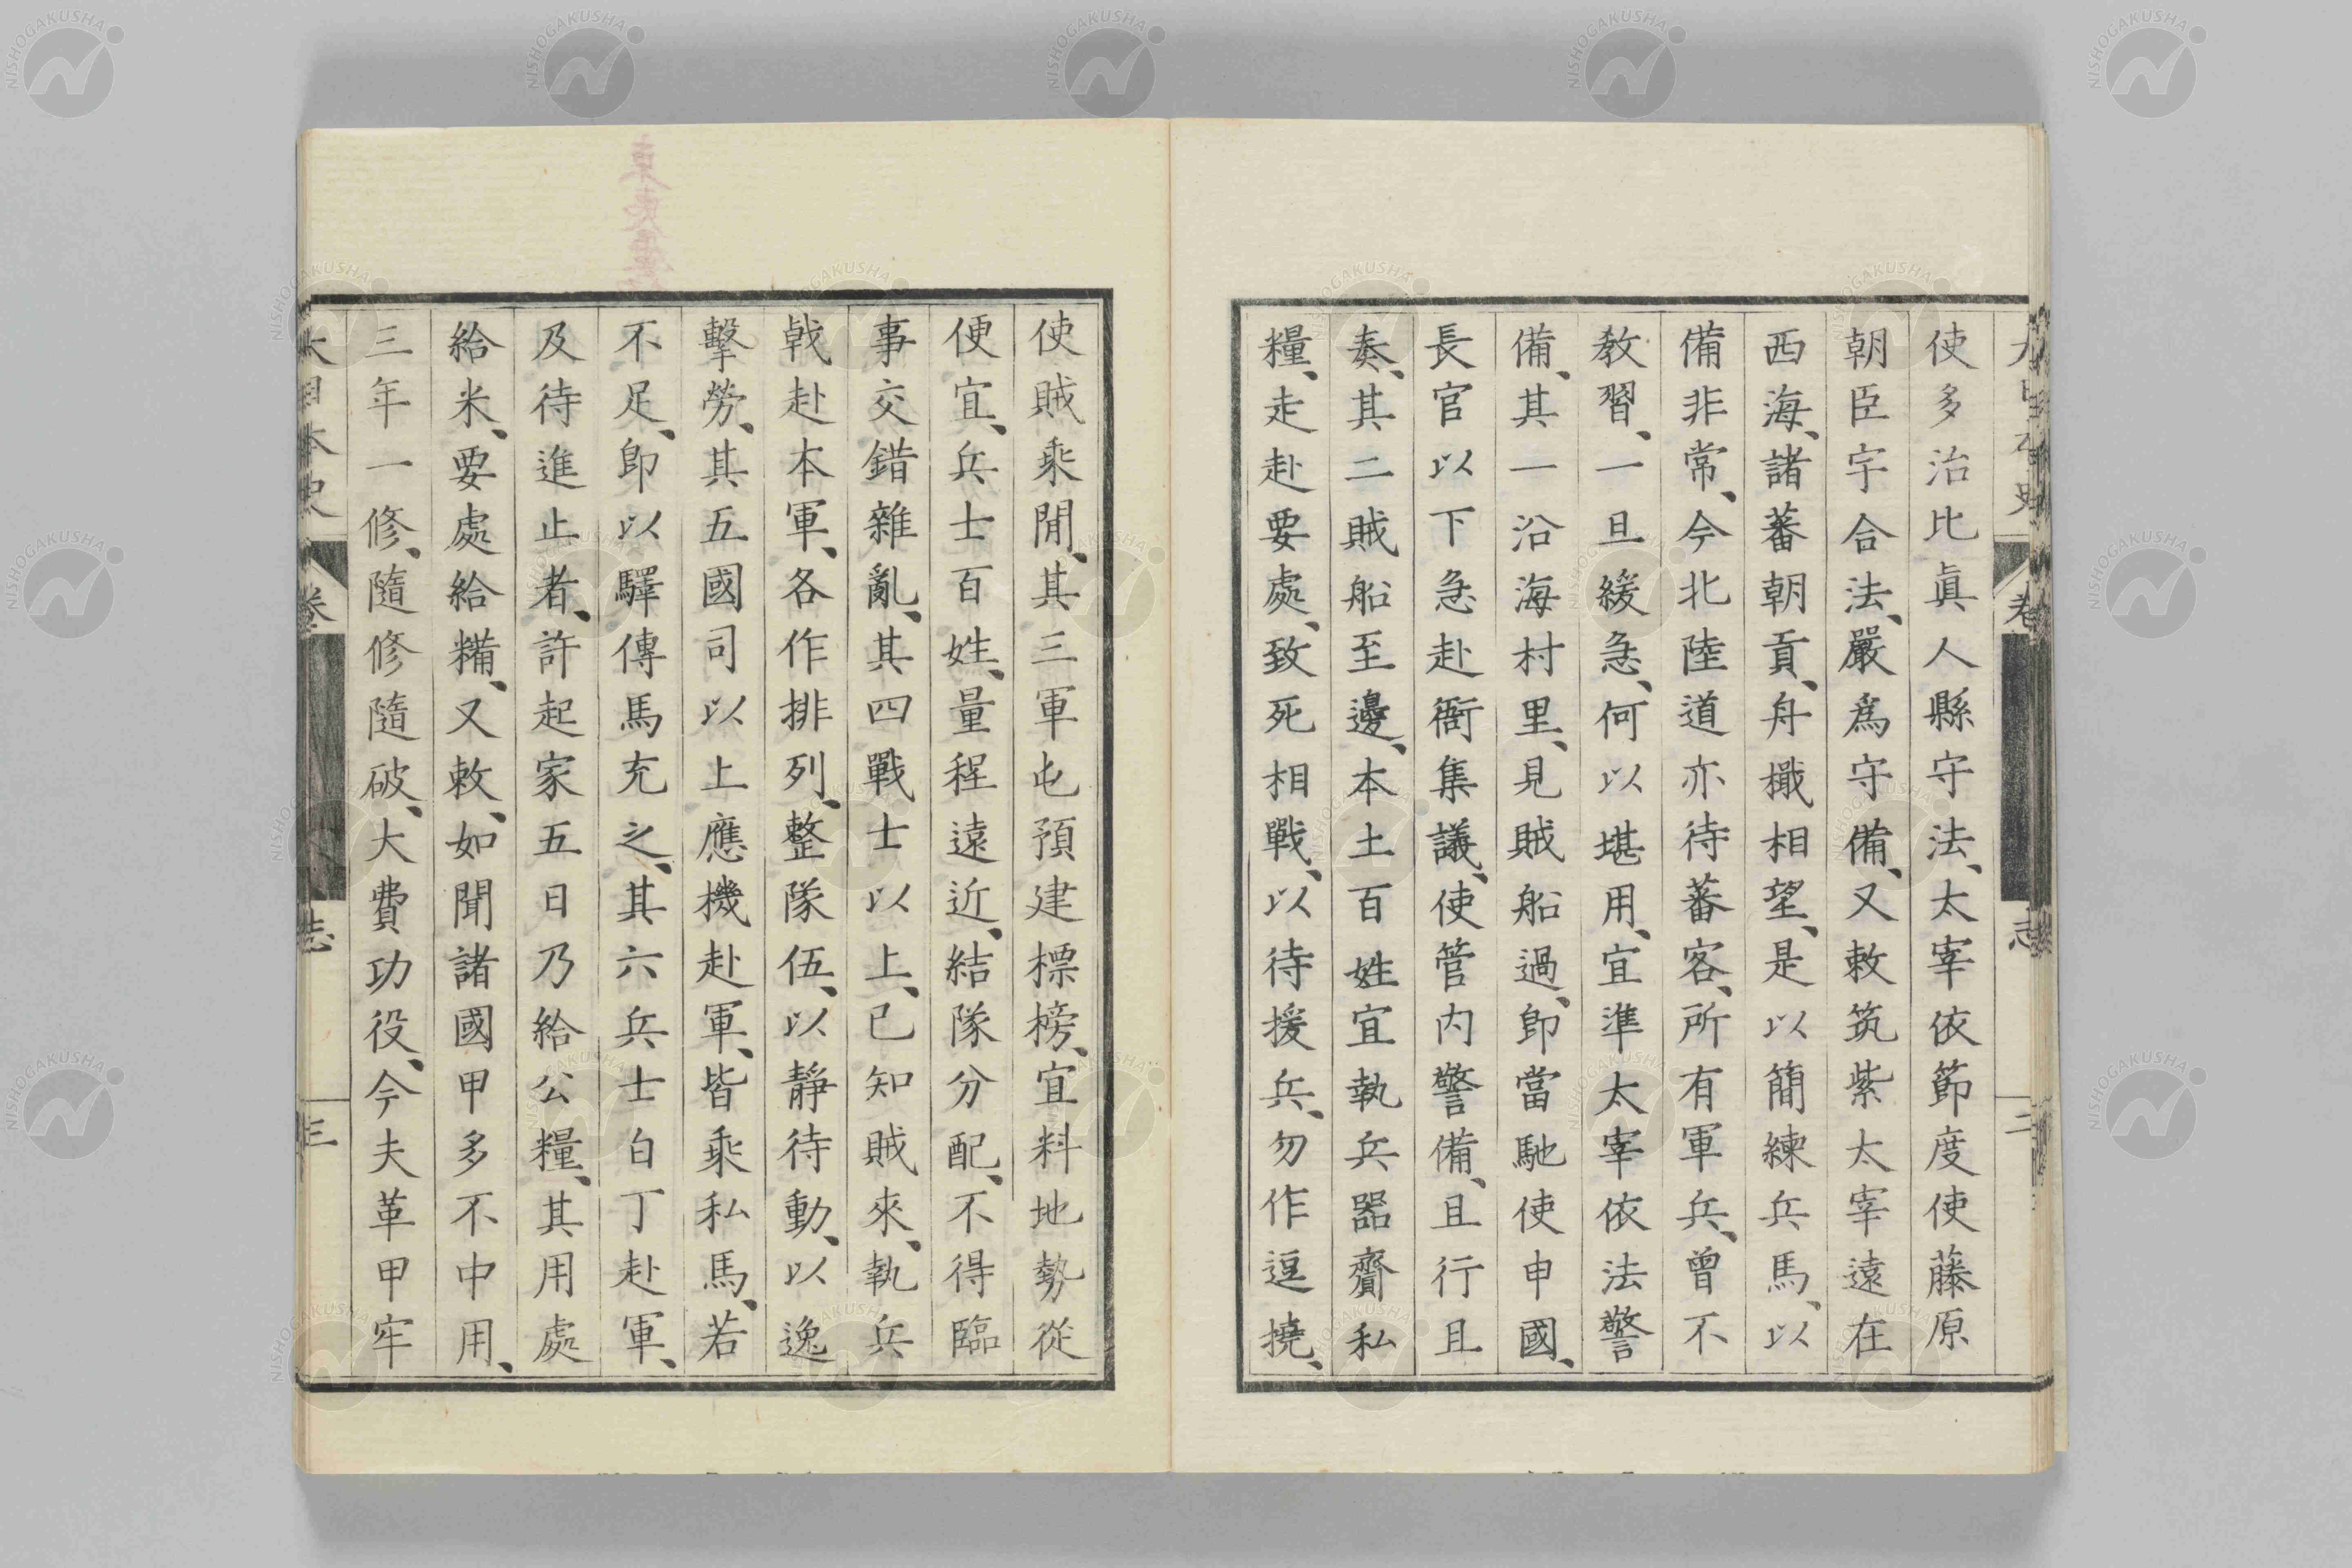 使多治比眞人縣守法、太宰依節度使藤原
朝臣宇合法、嚴爲守備、又敕筑紫太宰遠在
西海、諸蕃朝貢、舟檝相望、是以簡練兵馬、以
備非常、今北陸道亦待蕃客、所有軍兵、曾不
教習、一旦緩急、何以堪用、宜準太宰依法警
備、其一沿海村里、見賊船過、卽當馳使申國、
長官以下急赴衙集議、使管内警備、且行且
奏、其二賊船至邊、本土百姓宜執兵器齎私
糧、走赴要處、致死相戰、以待援兵、勿作逗撓、
使賊乘閒、其三軍屯預建標榜、宜料地勢從
便宜、兵士百姓、量程遠近、結隊分配、不得臨
事交錯雜亂、其四戰士以上、已知賊來、執兵
戟赴本軍、各作排列、整隊伍、以靜待動、以逸
擊勞、其五國司以上應機赴軍、皆乘私馬、若
不足、卽以驛傳馬充之、其六兵士白丁赴軍、
及待進止者、許起家五日乃給公糧、其用處
給米、要處給糒、又敕、如聞諸國甲多不中用、
三年一修、隨修隨破、大費功役、今夫革甲牢
大日本史 卷 志 三
NISHOGAKUSHA